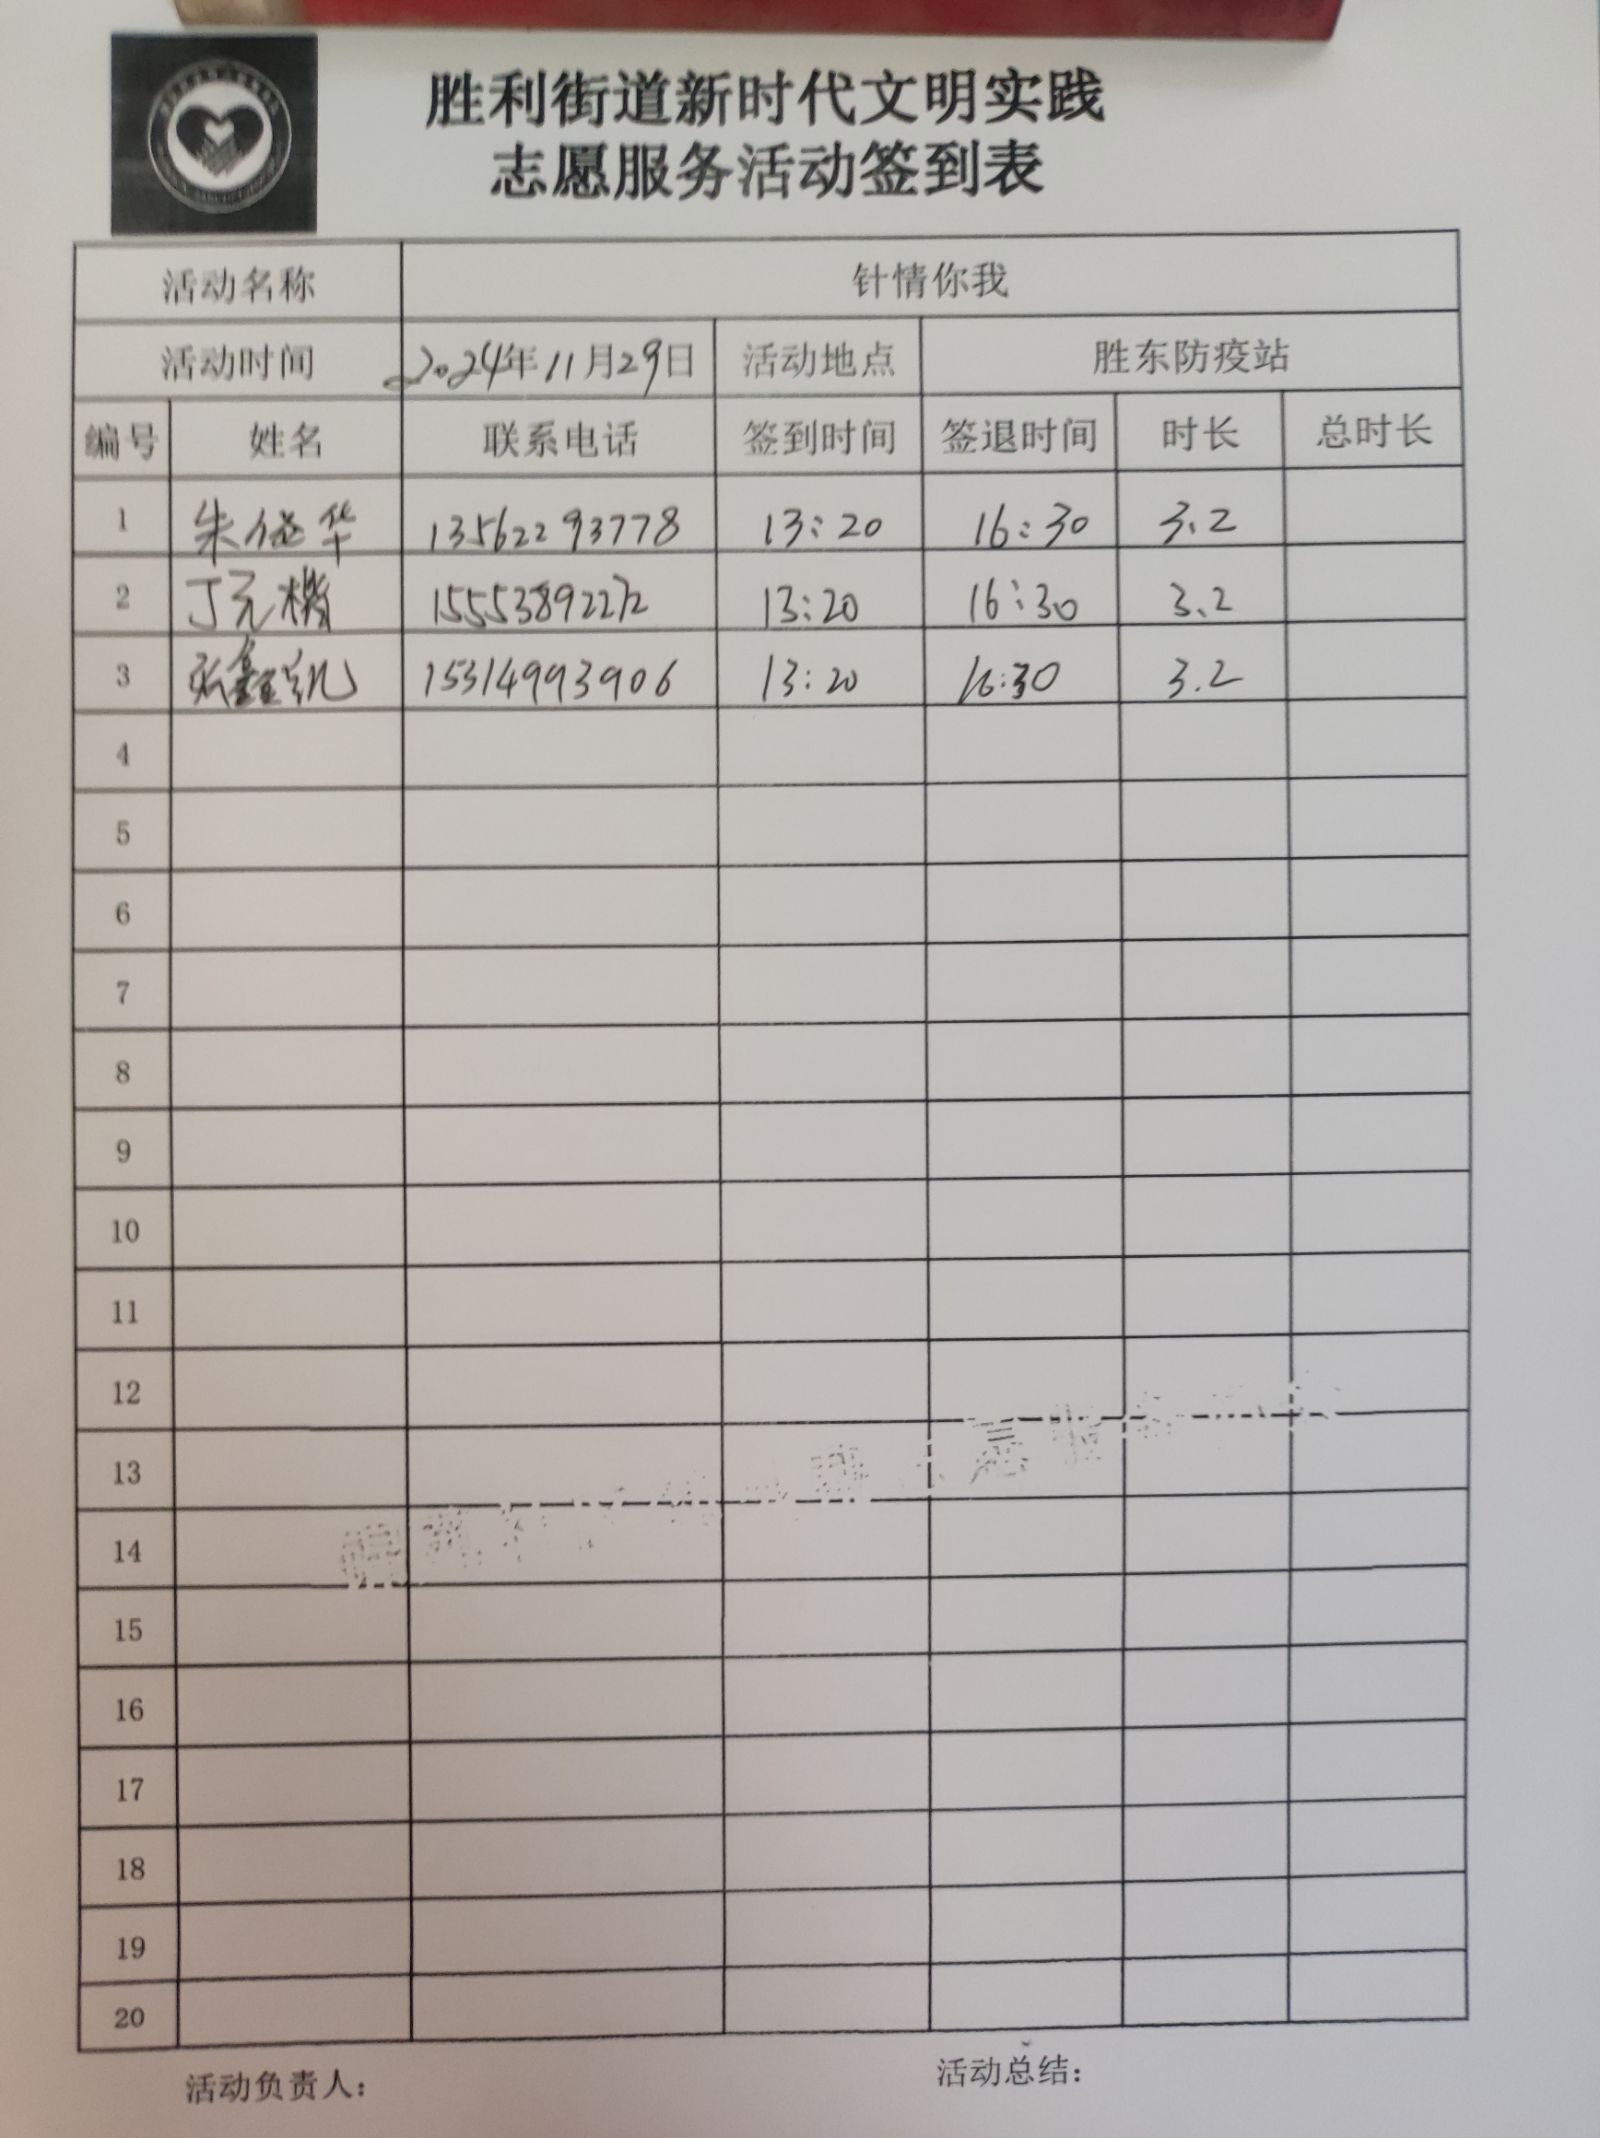 胜利街道新时代文明实践
志愿服务活动签到表
活动名称 针情你我
活动时间 2024年11月29日 活动地点 胜东防疫站
编号 姓名 联系电话 签到时间 签退时间 时长 总时长
1 朱 华 13562293778 13:20 16:30 3.2
2 丁元機 13:20 16:30 3.2
3 张鑫凯 15314993906 13:20 16:30 3.2
4
5
6
7
8
9
10
11
12
13
14
15
16
17
18
19
20
活动负责人： 活动总结：